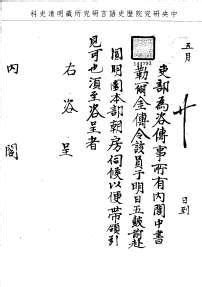 中央研究院歷史語言研究所藏明清史料
五月
廿
日到
吏部為咨傳事所有內閣中書
勒爾金傳令該員于明日五鼓前赴
圓明園本部朝房伺候以便帶領引
見可也須至咨呈者
右咨呈
內閣